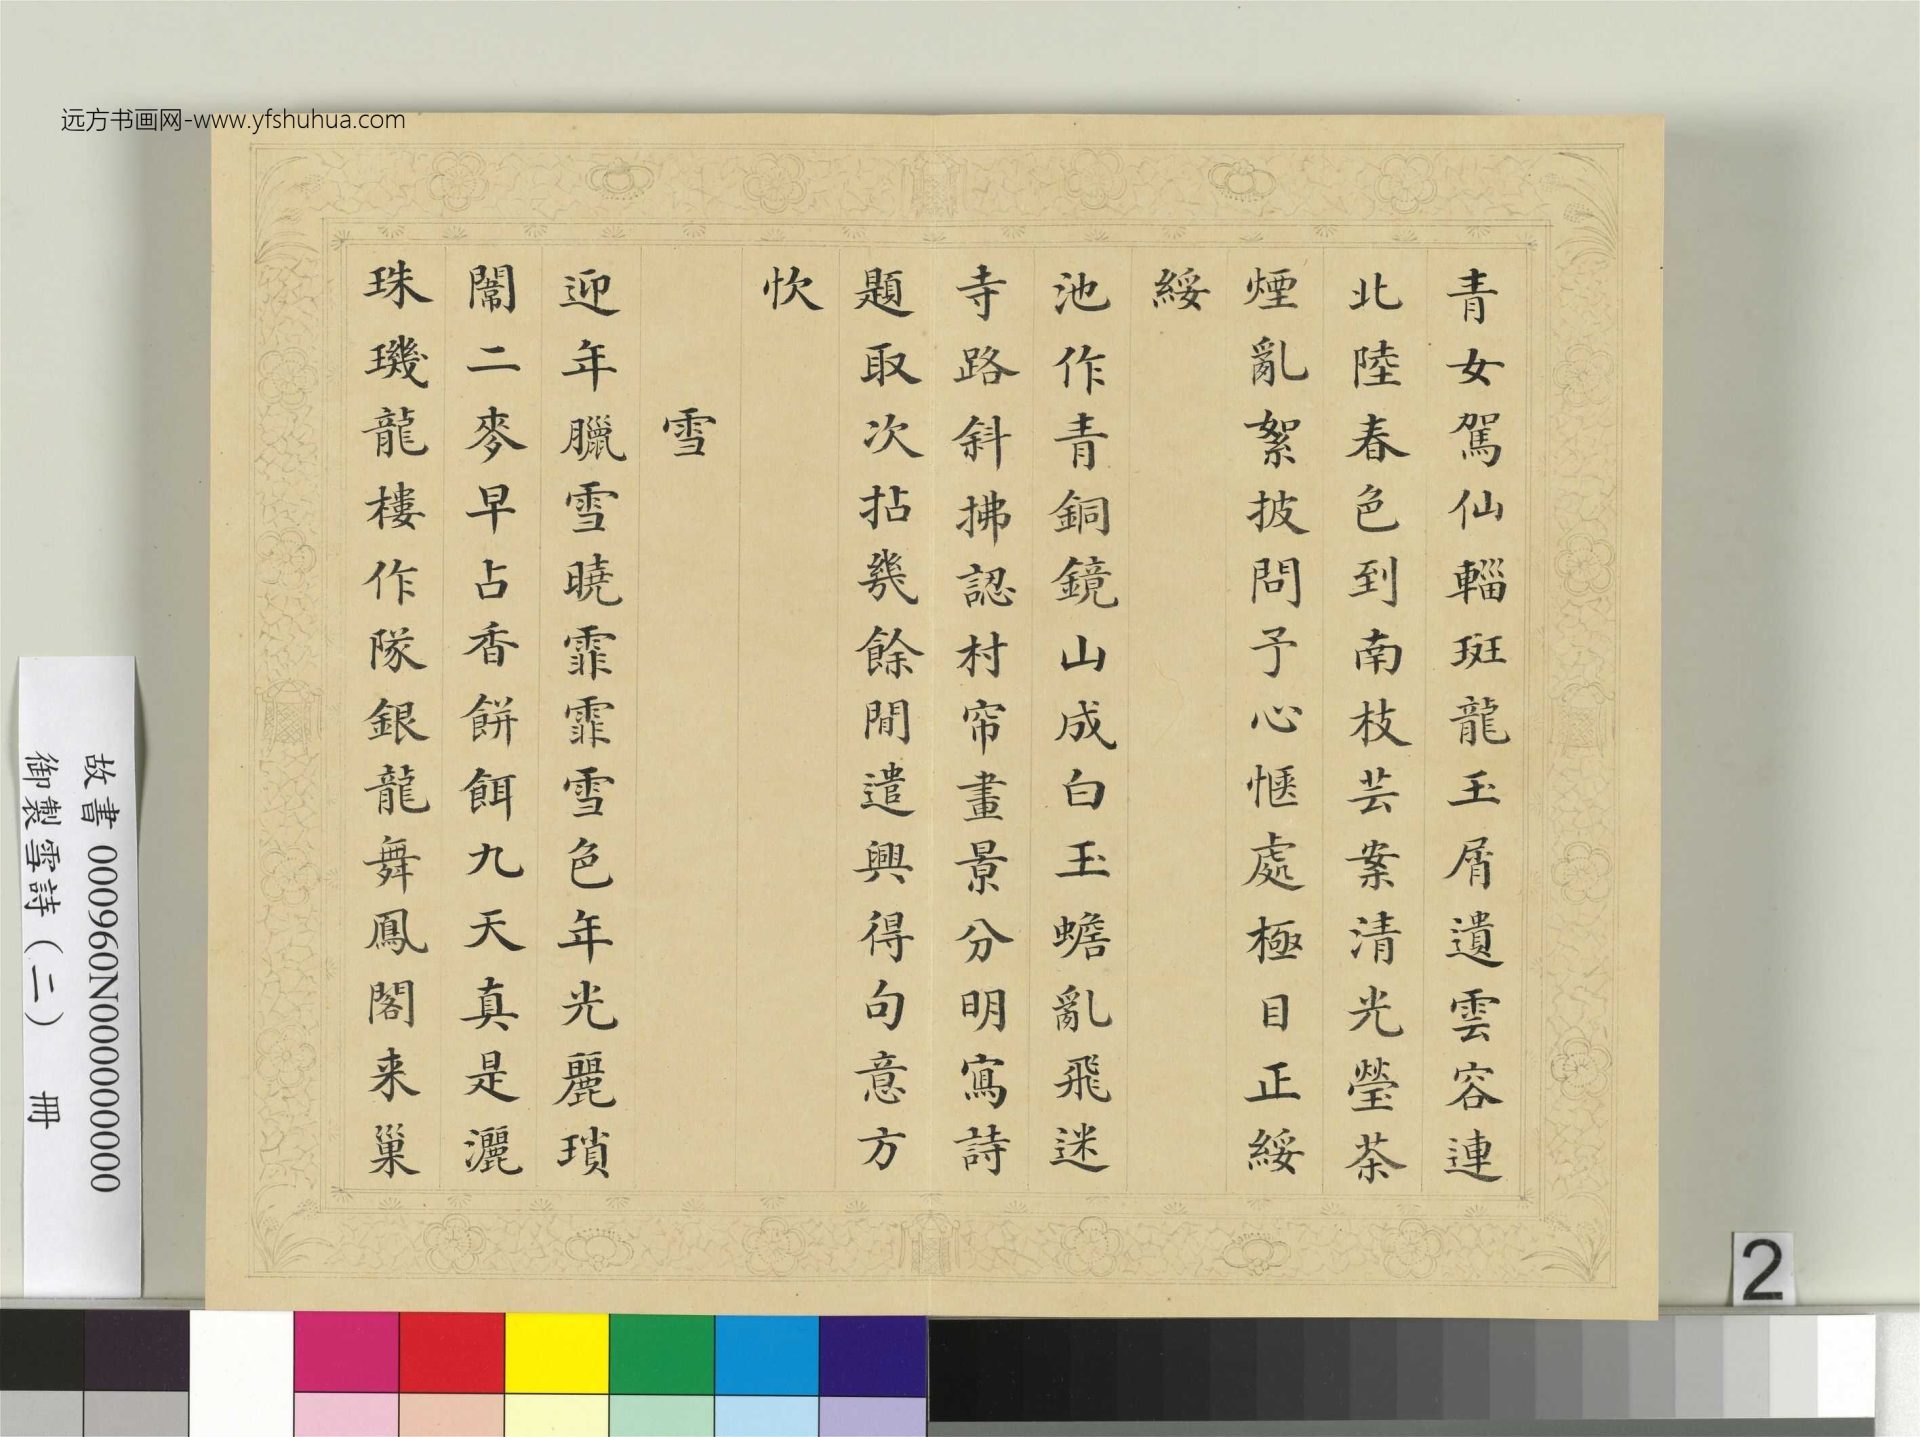 远方书画网-www.yfshuhua.com
青女駕仙輜斑龍玉屑遺雲容連
北陸春色到南枝芸案清光瑩茶
煙亂絮披問予心愜處極目正綏
綏
池作青銅鏡山成白玉蟾亂飛迷
寺路斜拂認村帘畫景分明寫詩
題取次拈幾餘閒遣興得句意方
忺
雪
迎年臘雪曉霏霏雪色年光麗瑣
闈二麥早占香餅餌九天真是灑
珠璣龍樓作隊銀龍舞鳳閣来巢
故書 000960N000000000
御製雪詩（二） 冊
2